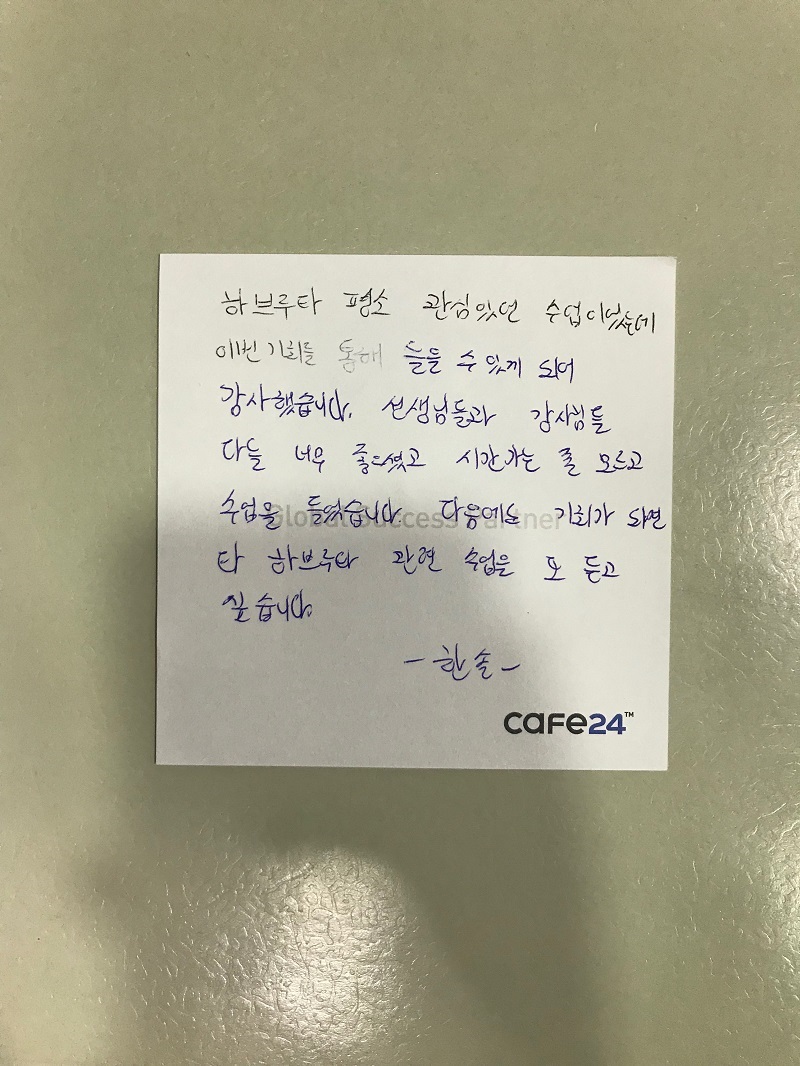 하브루타 평소 관심있던 수업이었는데
이번 기회를 통해 들을 수 있게 되어
감사했습니다. 선생님들과 강사님들
다들 너무 좋으셨고 시간가는 줄 모르고
수업을 들었습니다. 다음에도 기회가 되면
타 하브루타 관련 수업을 또 듣고
싶습니다.
Global Success Partner
- 한솔 -
cafe24™